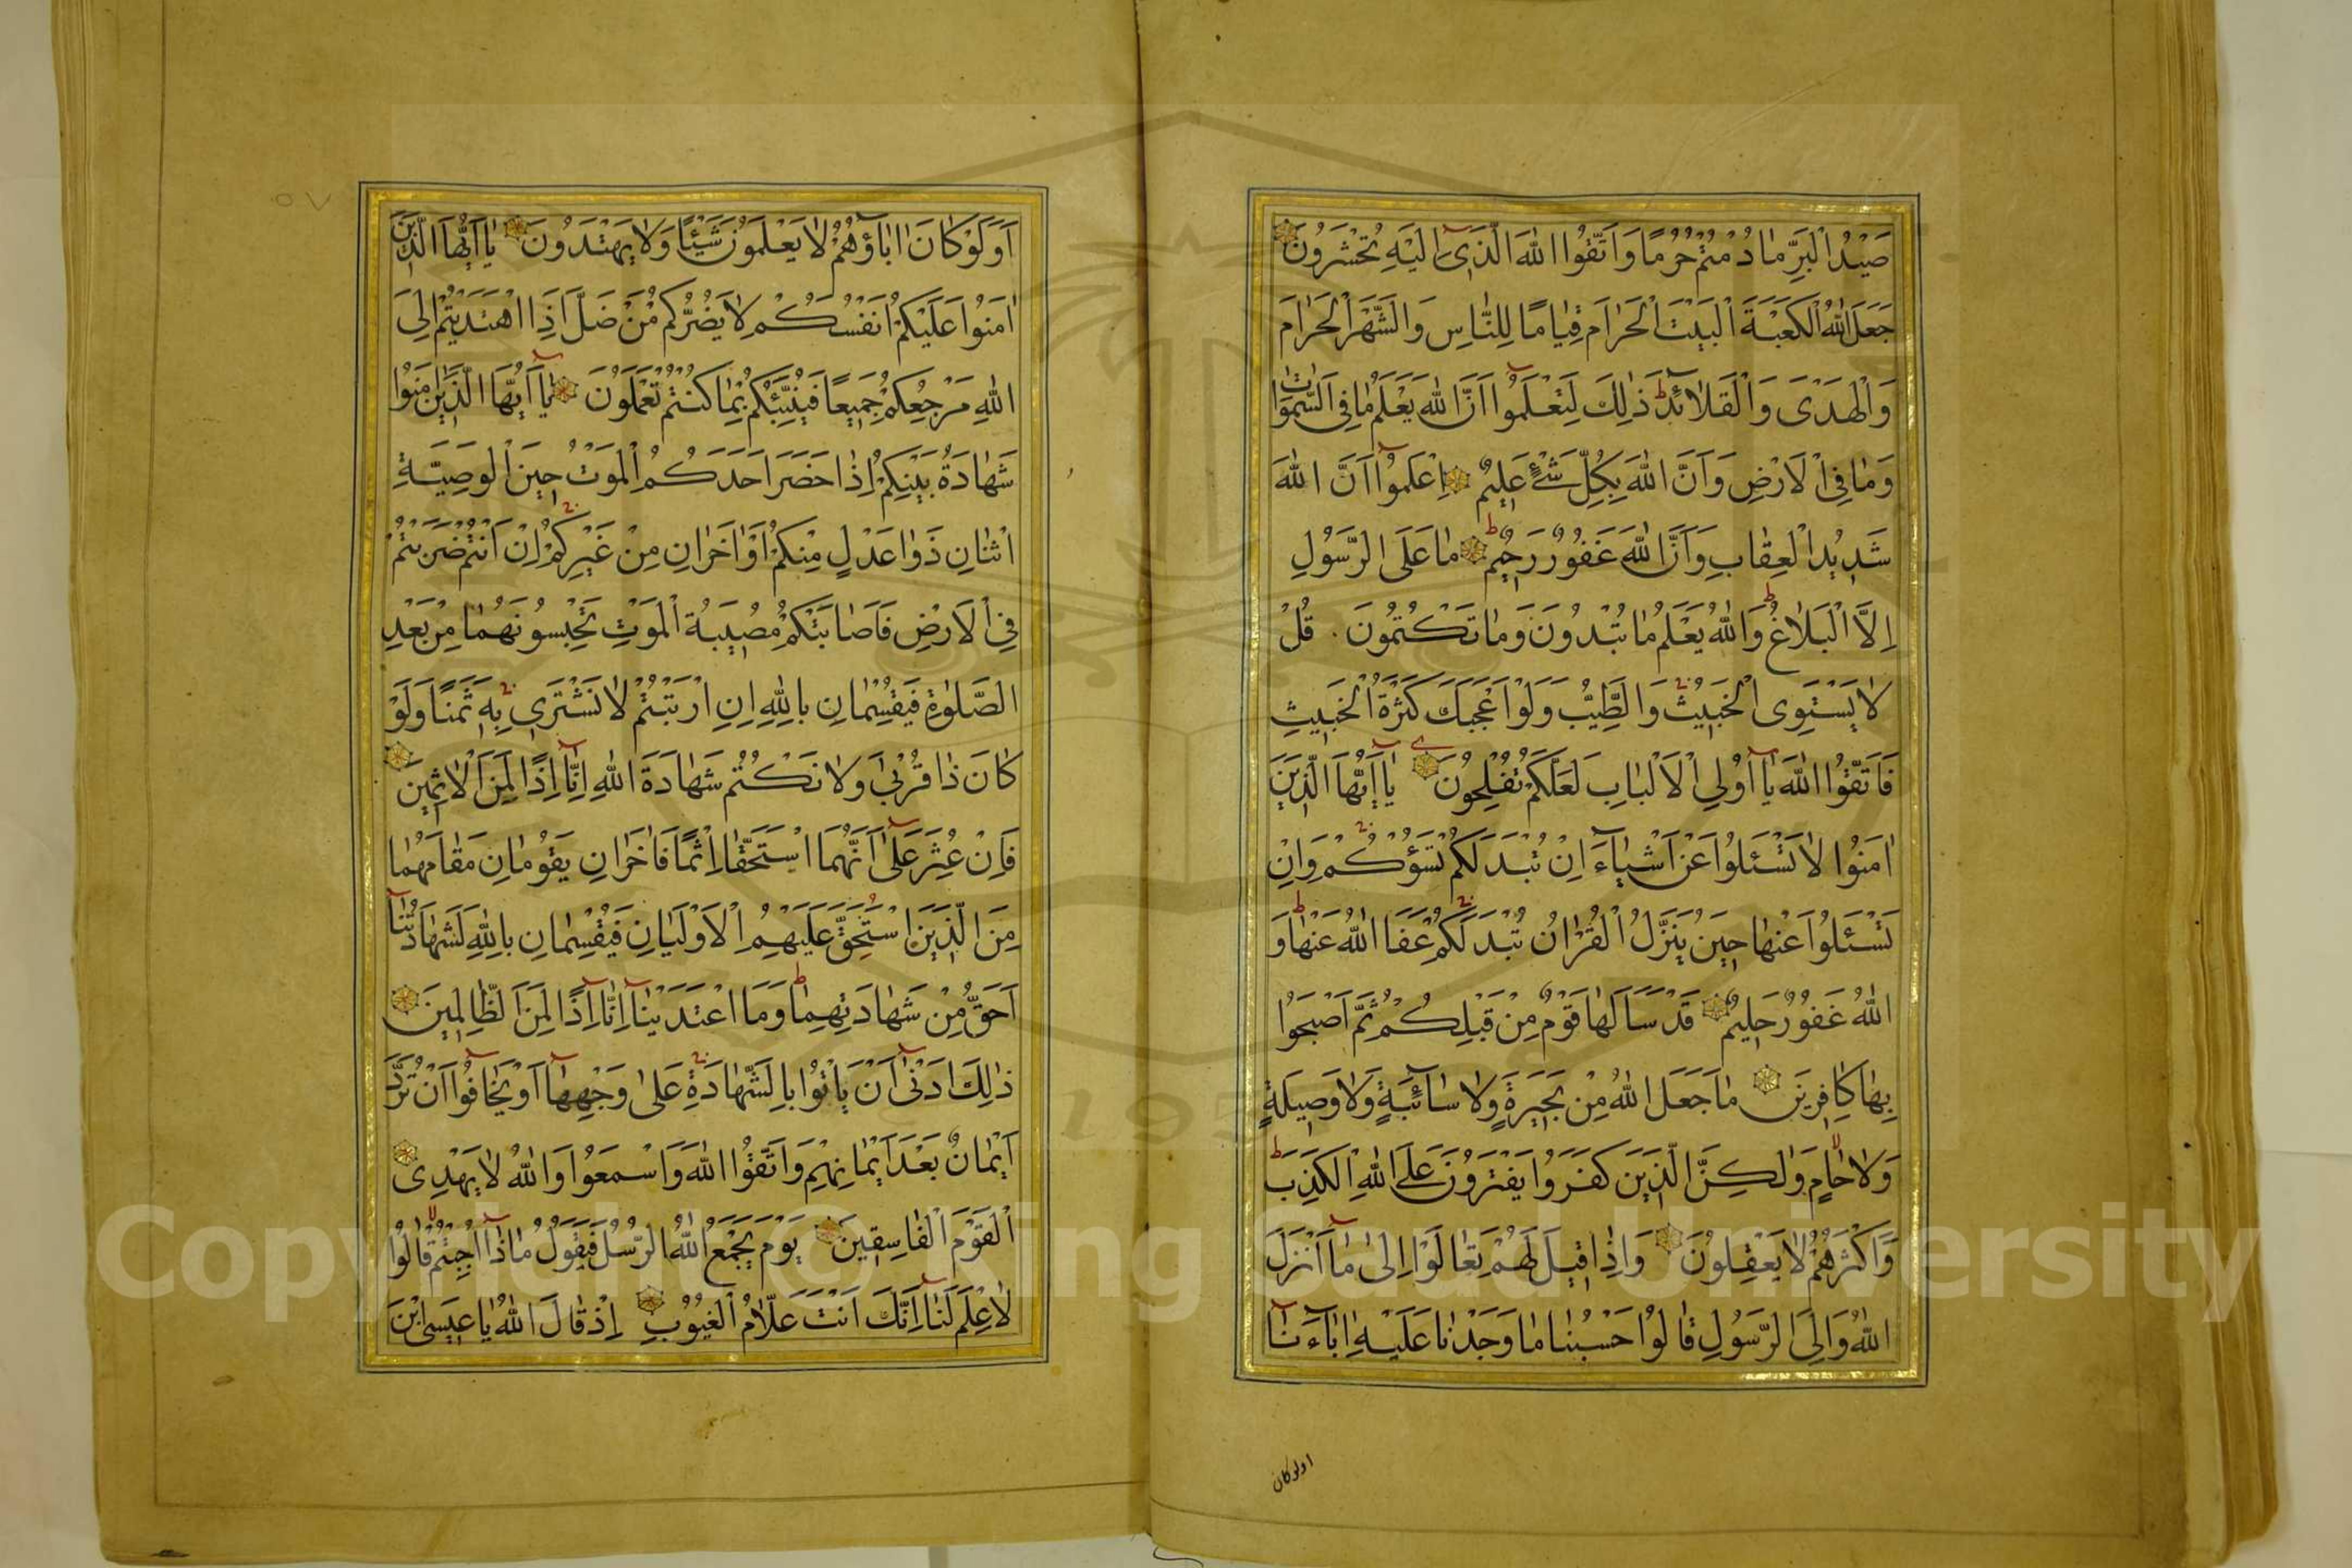 صَيْدُ الْبَرِّ مَا دُمْتُمْ حُرُمًا وَاتَّقُوا اللَّهَ الَّذِي إِلَيْهِ تُحْشَرُونَ
جَعَلَ اللَّهُ الْكَعْبَةَ الْبَيْتَ الْحَرَامَ قِيَامًا لِلنَّاسِ وَالشَّهْرَ الْحَرَامَ
وَالْهَدْيَ وَالْقَلَائِدَ ذَلِكَ لِتَعْلَمُوا أَنَّ اللَّهَ يَعْلَمُ مَا فِي السَّمَوَاتِ
وَمَا فِي الْأَرْضِ وَأَنَّ اللَّهَ بِكُلِّ شَيْءٍ عَلِيمٌ اِعْلَمُوا أَنَّ اللَّهَ
شَدِيدُ الْعِقَابِ وَأَنَّ اللَّهَ غَفُورٌ رَحِيمٌ مَا عَلَى الرَّسُولِ
إِلَّا الْبَلَاغُ وَاللَّهُ يَعْلَمُ مَا تُبْدُونَ وَمَا تَكْتُمُونَ قُلْ
لَا يَسْتَوِي الْخَبِيثُ وَالطَّيِّبُ وَلَوْ أَعْجَبَكَ كَثْرَةُ الْخَبِيثِ
فَاتَّقُوا اللَّهَ يَا أُولِي الْأَلْبَابِ لَعَلَّكُمْ تُفْلِحُونَ يَا أَيُّهَا الَّذِينَ
اٰمَنُوا لَا تَسْئَلُوا عَنْ أَشْيَاءَ إِنْ تُبْدَ لَكُمْ تَسُؤْكُمْ وَإِنْ
تَسْئَلُوا عَنْهَا حِينَ يُنَزَّلُ الْقُرْاٰنُ تُبْدَ لَكُمْ عَفَا اللَّهُ عَنْهَا وَ
اللَّهُ غَفُورٌ حَلِيمٌ قَدْ سَأَلَهَا قَوْمٌ مِنْ قَبْلِكُمْ ثُمَّ أَصْبَحُوا
بِهَا كَافِرِينَ مَا جَعَلَ اللَّهُ مِنْ بَحِيرَةٍ وَلَا سَائِبَةٍ وَلَا وَصِيلَةٍ
وَلَا حَامٍ وَلٰكِنَّ الَّذِينَ كَفَرُوا يَفْتَرُونَ عَلَى اللَّهِ الْكَذِبَ
وَأَكْثَرُهُمْ لَا يَعْقِلُونَ وَإِذَا قِيلَ لَهُمْ تَعَالَوْا إِلَى مَا أَنْزَلَ
اللَّهُ وَإِلَى الرَّسُولِ قَالُوا حَسْبُنَا مَا وَجَدْنَا عَلَيْهِ اٰبَاءَنَا
اولوكان
٥٧
أَوَلَوْ كَانَ اٰبَاؤُهُمْ لَا يَعْلَمُونَ شَيْئًا وَلَا يَهْتَدُونَ يَا أَيُّهَا الَّذِينَ
اٰمَنُوا عَلَيْكُمْ أَنْفُسَكُمْ لَا يَضُرُّكُمْ مَنْ ضَلَّ إِذَا اهْتَدَيْتُمْ إِلَى
اللَّهِ مَرْجِعُكُمْ جَمِيعًا فَيُنَبِّئُكُمْ بِمَا كُنْتُمْ تَعْمَلُونَ يَا أَيُّهَا الَّذِينَ اٰمَنُوا
شَهَادَةُ بَيْنِكُمْ إِذَا حَضَرَ أَحَدَكُمُ الْمَوْتُ حِينَ الْوَصِيَّةِ
اثْنَانِ ذَوَا عَدْلٍ مِنْكُمْ أَوْ اٰخَرَانِ مِنْ غَيْرِكُمْ إِنْ أَنْتُمْ ضَرَبْتُمْ
فِي الْأَرْضِ فَأَصَابَتْكُمْ مُصِيبَةُ الْمَوْتِ تَحْبِسُونَهُمَا مِنْ بَعْدِ
الصَّلٰوةِ فَيُقْسِمَانِ بِاللَّهِ إِنِ ارْتَبْتُمْ لَا نَشْتَرِي بِهِ ثَمَنًا وَلَوْ
كَانَ ذَا قُرْبَى وَلَا نَكْتُمُ شَهَادَةَ اللَّهِ إِنَّا إِذًا لَمِنَ الْاٰثِمِينَ
فَإِنْ عُثِرَ عَلَى أَنَّهُمَا اسْتَحَقَّا إِثْمًا فَاٰخَرَانِ يَقُومَانِ مَقَامَهُمَا
مِنَ الَّذِينَ اسْتُحِقَّ عَلَيْهِمُ الْأَوْلَيَانِ فَيُقْسِمَانِ بِاللَّهِ لَشَهَادَتُنَا
أَحَقُّ مِنْ شَهَادَتِهِمَا وَمَا اعْتَدَيْنَا إِنَّا إِذًا لَمِنَ الظَّالِمِينَ
ذٰلِكَ أَدْنَى أَنْ يَأْتُوا بِالشَّهَادَةِ عَلَى وَجْهِهَا أَوْ يَخَافُوا أَنْ تُرَدَّ
أَيْمَانٌ بَعْدَ أَيْمَانِهِمْ وَاتَّقُوا اللَّهَ وَاسْمَعُوا وَاللَّهُ لَا يَهْدِي
الْقَوْمَ الْفَاسِقِينَ يَوْمَ يَجْمَعُ اللَّهُ الرُّسُلَ فَيَقُولُ مَاذَا أُجِبْتُمْ قَالُوا
لَا عِلْمَ لَنَا إِنَّكَ أَنْتَ عَلَّامُ الْغُيُوبِ إِذْ قَالَ اللَّهُ يَا عِيسَى ابْنَ
Copyright © King Saud University